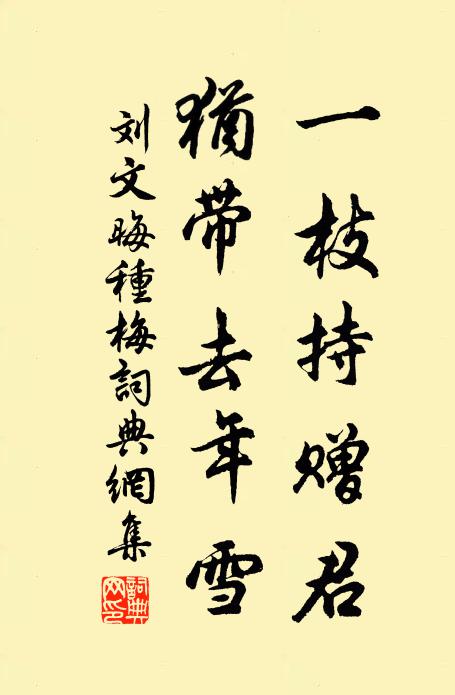 一枝持赠君
猶带去年雪
刘文晦種梅詞典網集
詞典網印